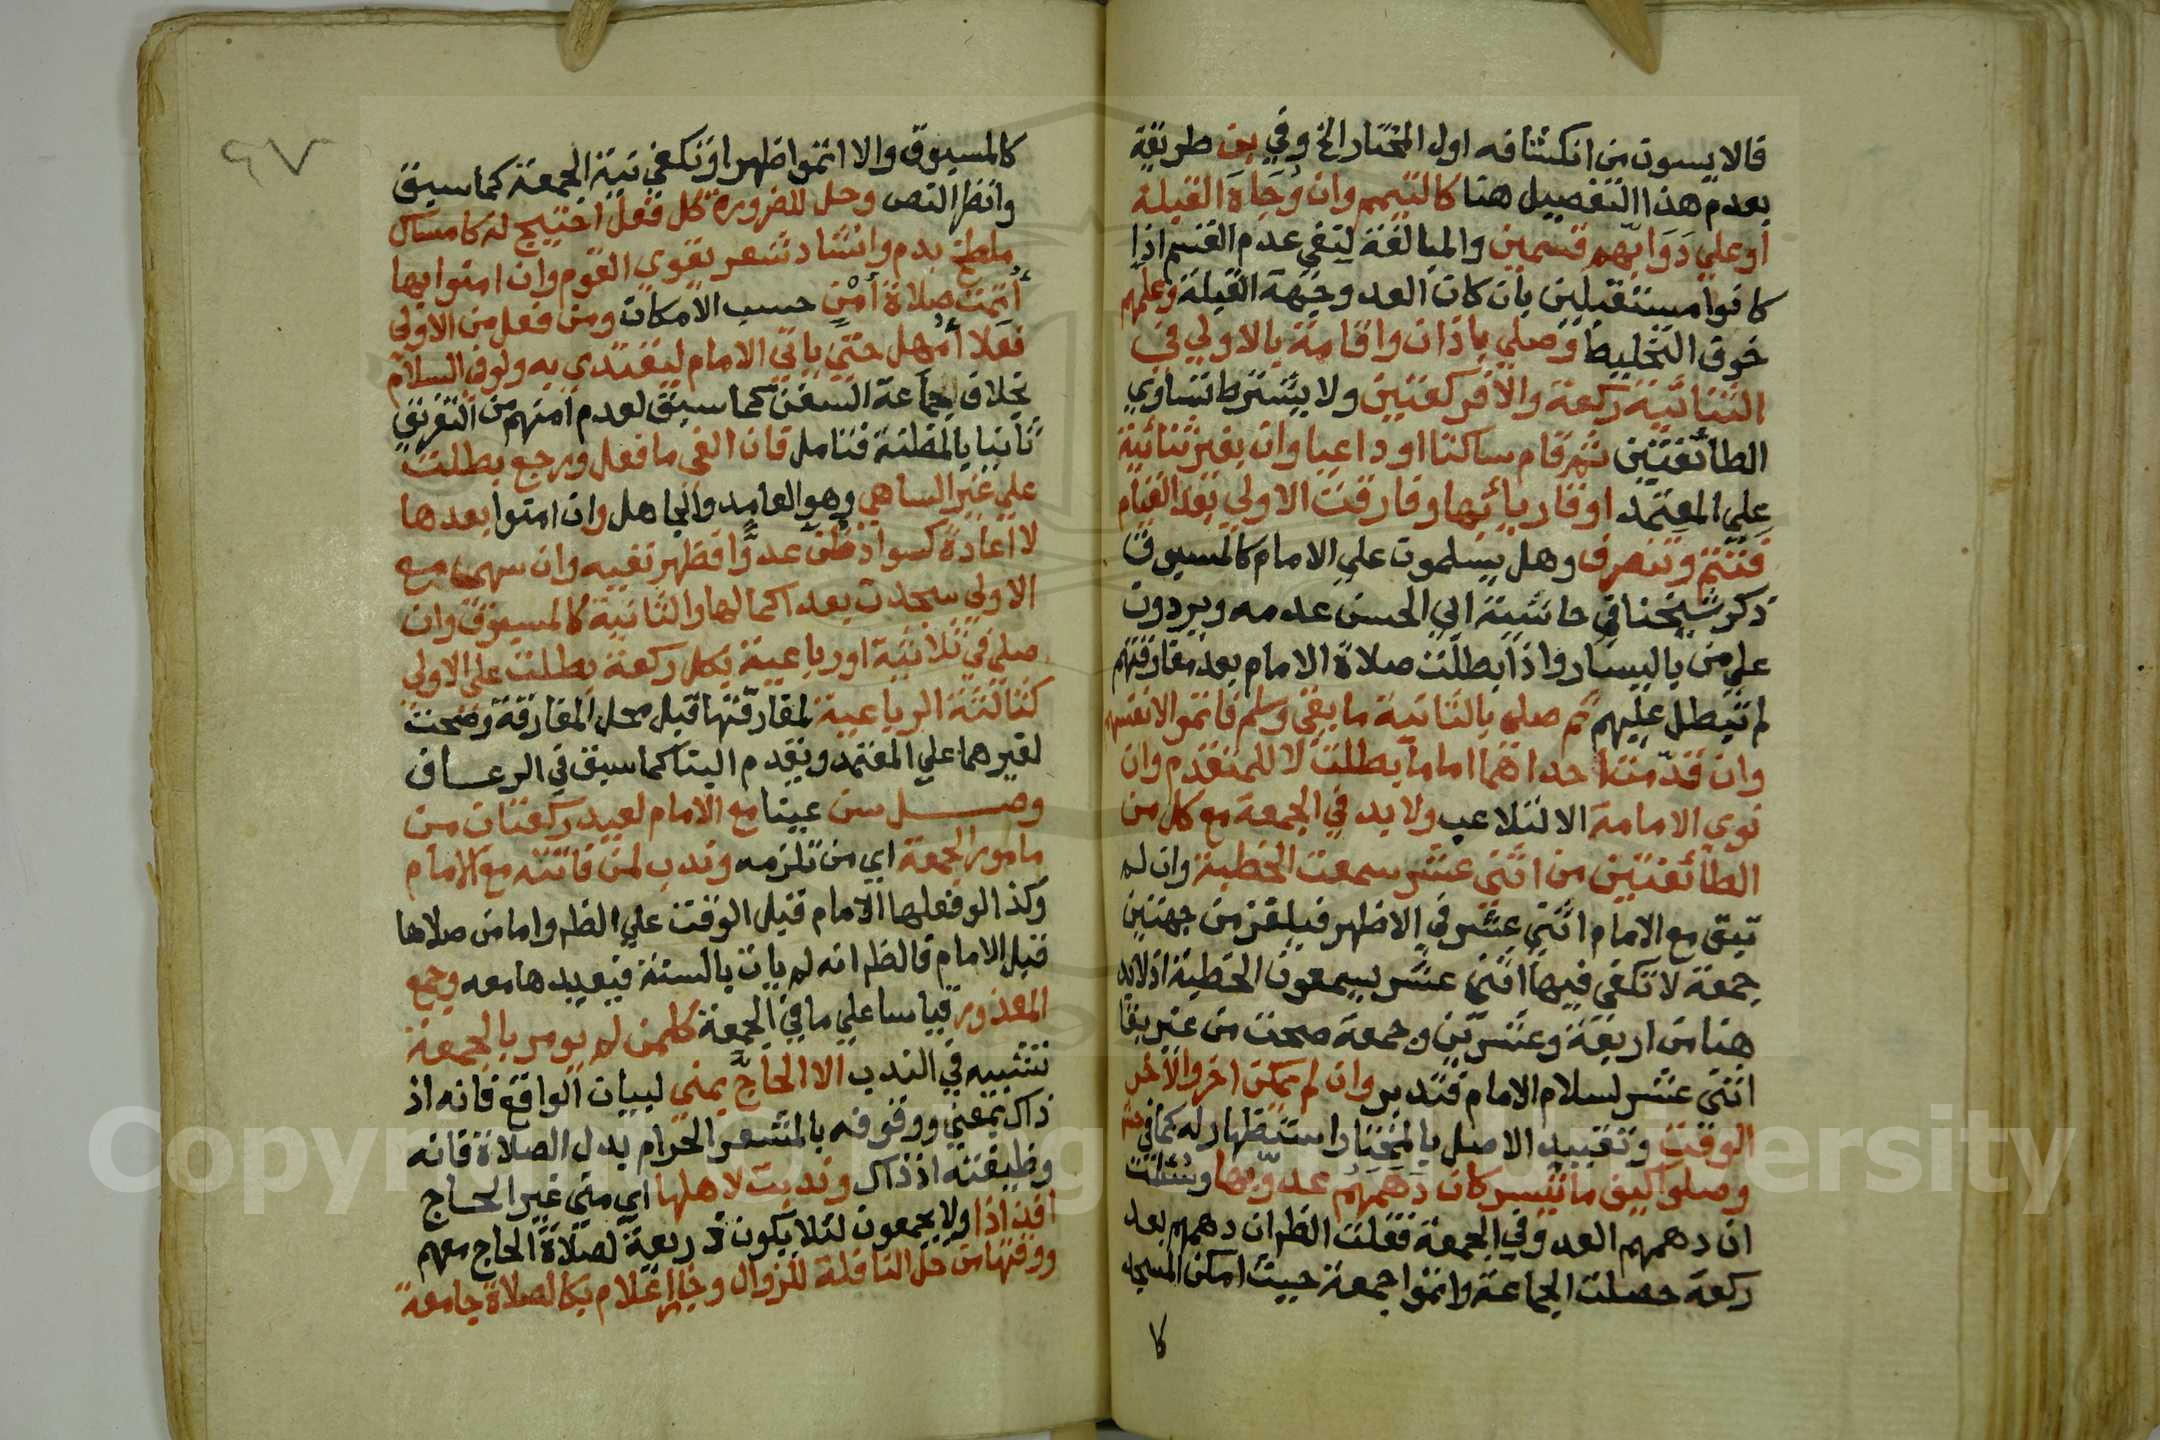 فالايسون من انكشافه اول المختار الخ وفي بن طريقة
بعدم هذا التفصيل هنا كالتيمم وان وجاه القبلة
او علي دوابهم قسمين والمبالغة لنفي عدم القسم اذا
كانوا مستقبلين بان كان العدو جهة القبلة وعلمهم
خوف التخليط وصلي باذان واقامة بالاولي في
الثنائية ركعة والا فركعتين ولا يشترط تساوي
الطائفتين ثم قام ساكتا او داعيا وان بغير ثنائية
علي المعتمد او قاريا بها وفارقت الاولي بعد القيام
فتتم وتنصرف وهل يسلمون علي الامام كالمسبوق
ذكر شيخنا في حاشية ابي الحسن عدمه ويردون
علي من باليسار واذا بطلت صلاة الامام بعد مفارقتهم
لم تبطل عليهم ثم صلي بالثانية ما بقي وسلم فاتموا لانفسهم
وان قدمت احداهما اماما بطلت لا للمتقدم وان
نوي الامامة الا لتلاعب ولا بد في الجمعة مع كل من
الطائفتين من اثني عشر سمعت الخطبة وان لم
تبق مع الامام اثني عشر في الاظهر فيلغز من جهتين
جمعة لا تكفي فيها اثني عشر يسمعون الخطبة اذ لا بد
هنا من اربعة وعشرين وجمعة صحت من غير بقا
اثني عشر لسلام الامام فتدبر وان لم يمكن اخر والاخر
الوقت وتقييد الاصل بالمختار استظهار له كما في حش
وصلوا كيف ما تيسر كان دهمهم عدو بها وشملت
ان دهمهم العدو في الجمعة ففلت الظ ان دهمهم بعد
ركعة حصلت الجماعة واتموا جمعة حيث امكن المسجد
كا
٩٧
كالمسبوق والا اتموا ظهرا وتكفي نية الجمعة كما سبق
وانظر النص وحل للضرورة كل فعل احتيج له كامساك
ملطخ بدم وانشاد شعر يقوي القوم وان امنوا بها
أتمت صلاة أمن حسب الامكان ومن فعل من الاولي
فعلا أمهل حتي ياتي الامام ليقتدي به ولو في السلام
بخلاف جماعة السفن كما سبق لعدم امنهم من التفريق
ثانيا بالمظنة فتامل فان الغي ما فعل ورجع بطلت
علي غير الساهي وهو العامد والجاهل وان امنوا بعدها
لا اعادة كسواد ظن عدوا فظهر نفيه وان سهي مع
الاولي سجدت بعد اكمالها والثانية كالمسبوق وان
صلي في ثلاثية او رباعية بكل ركعة بطلت علي الاولي
كثالثة الرباعية لمفارقتها قبل محل المفارقة وصحت
لغيرهما علي المعتمد ويقدم البنا كما سبق في الرعاف
وصل سن عينا مع الامام لعيد ركعتان من
مامور الجمعة اي من تلزمه وندب لمن فاتته مع الامام
وكذا لو فعلها الامام قبل الوقت علي الظ واما من صلاها
قبل الامام فالظ انه لم يات بالسنة فيعيدها معه وجمع
المعذور قياسا علي ما في الجمعة كلمن لم يومر بالجمعة
تشبيه في الندب الا الحاج بمني لبيان الواقع فانه اذ
ذاك بمعني ووقوفه بالمشعر الحرام بدل الصلاة فانه
وظيفته اذ ذاك وندبت لاهلها اي مني غير الحاج
افذاذا ولا يجمعون لئلا يكون ذريعة لصلاة الحاج معهم
ووقتها من حل النافلة للزوال وجاز اعلام بكالصلاة جامعة